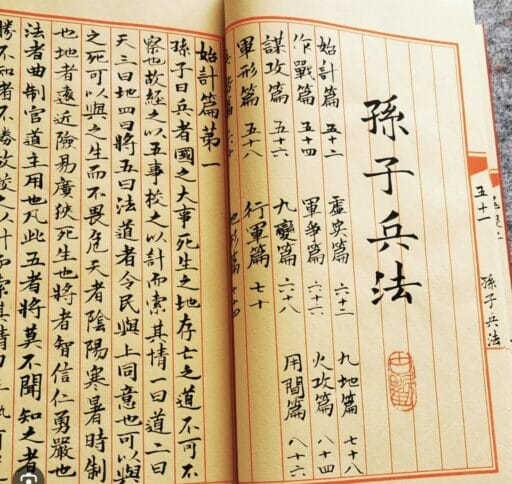 五十一
孫子兵法
孫子兵法
始計篇 五十二 虛实篇 六十二 九地篇 七十八
作戰篇 五十四 軍爭篇 六十六 火攻篇 八十四
謀攻篇 五十六 九變篇 六十八 用間篇 八十六
軍形篇 五十八 行軍篇 七十
篇 六十 地形篇 七十四
始計篇第一
孫子曰兵者國之大事死生之地存亡之道不可不
察也故經之以五事校之以計而索其情一曰道二曰
天三曰地四曰將五曰法道者令民與上同意也可以與
之死可以與之生而不畏危天者陰陽寒暑時制
也地者遠近險易廣狹死生也將者智信仁勇嚴也
法者曲制官道主用也凡此五者將莫不聞知之者
勝不知者不勝故校之以計而索其情曰